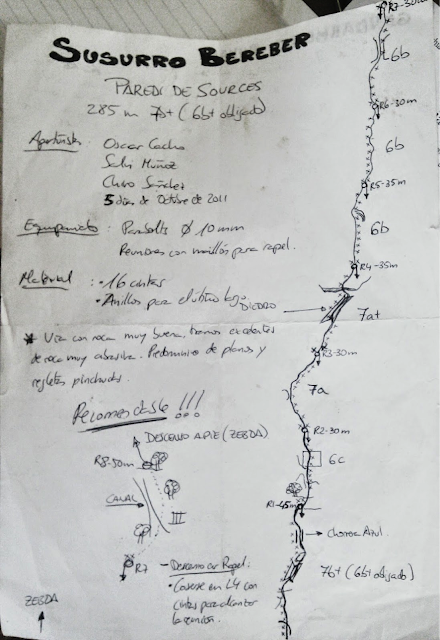 SUSURRO BEREBER
PARED DE SOURCES
285 m 7b+ (6b+ obligado)
Aperturistas: Oscar Cacho
Salvi Muñoz
Chiro Sánchez
5 días de Octubre de 2011
Equipamiento: Parabolts Ø 10 mm
Reuniones con anillos para rapel.
Material: · 16 cintas
· Anillos para el último largo.
* Vía con roca muy buena, tramos excelentes
de roca muy abrasiva. Predominio de planos y
regletas pinchudas.
Recomendable!!!
DESCENSO A PIE (ZEBDA)
R8-50m
CANAL
III
R7
- Descenso en Rapel.
· Coserse en L4 con
cintas para alcanzar
la reunión.
ZEBDA
R7-30m
6b
R6-30m
6b
R5-35m
6b
R4-35m
DIEDRO
7a+
R3-30m
7a
R2-30m
6c
R1-45m
Chorrera Azul.
7b+ (6b+ obligado)